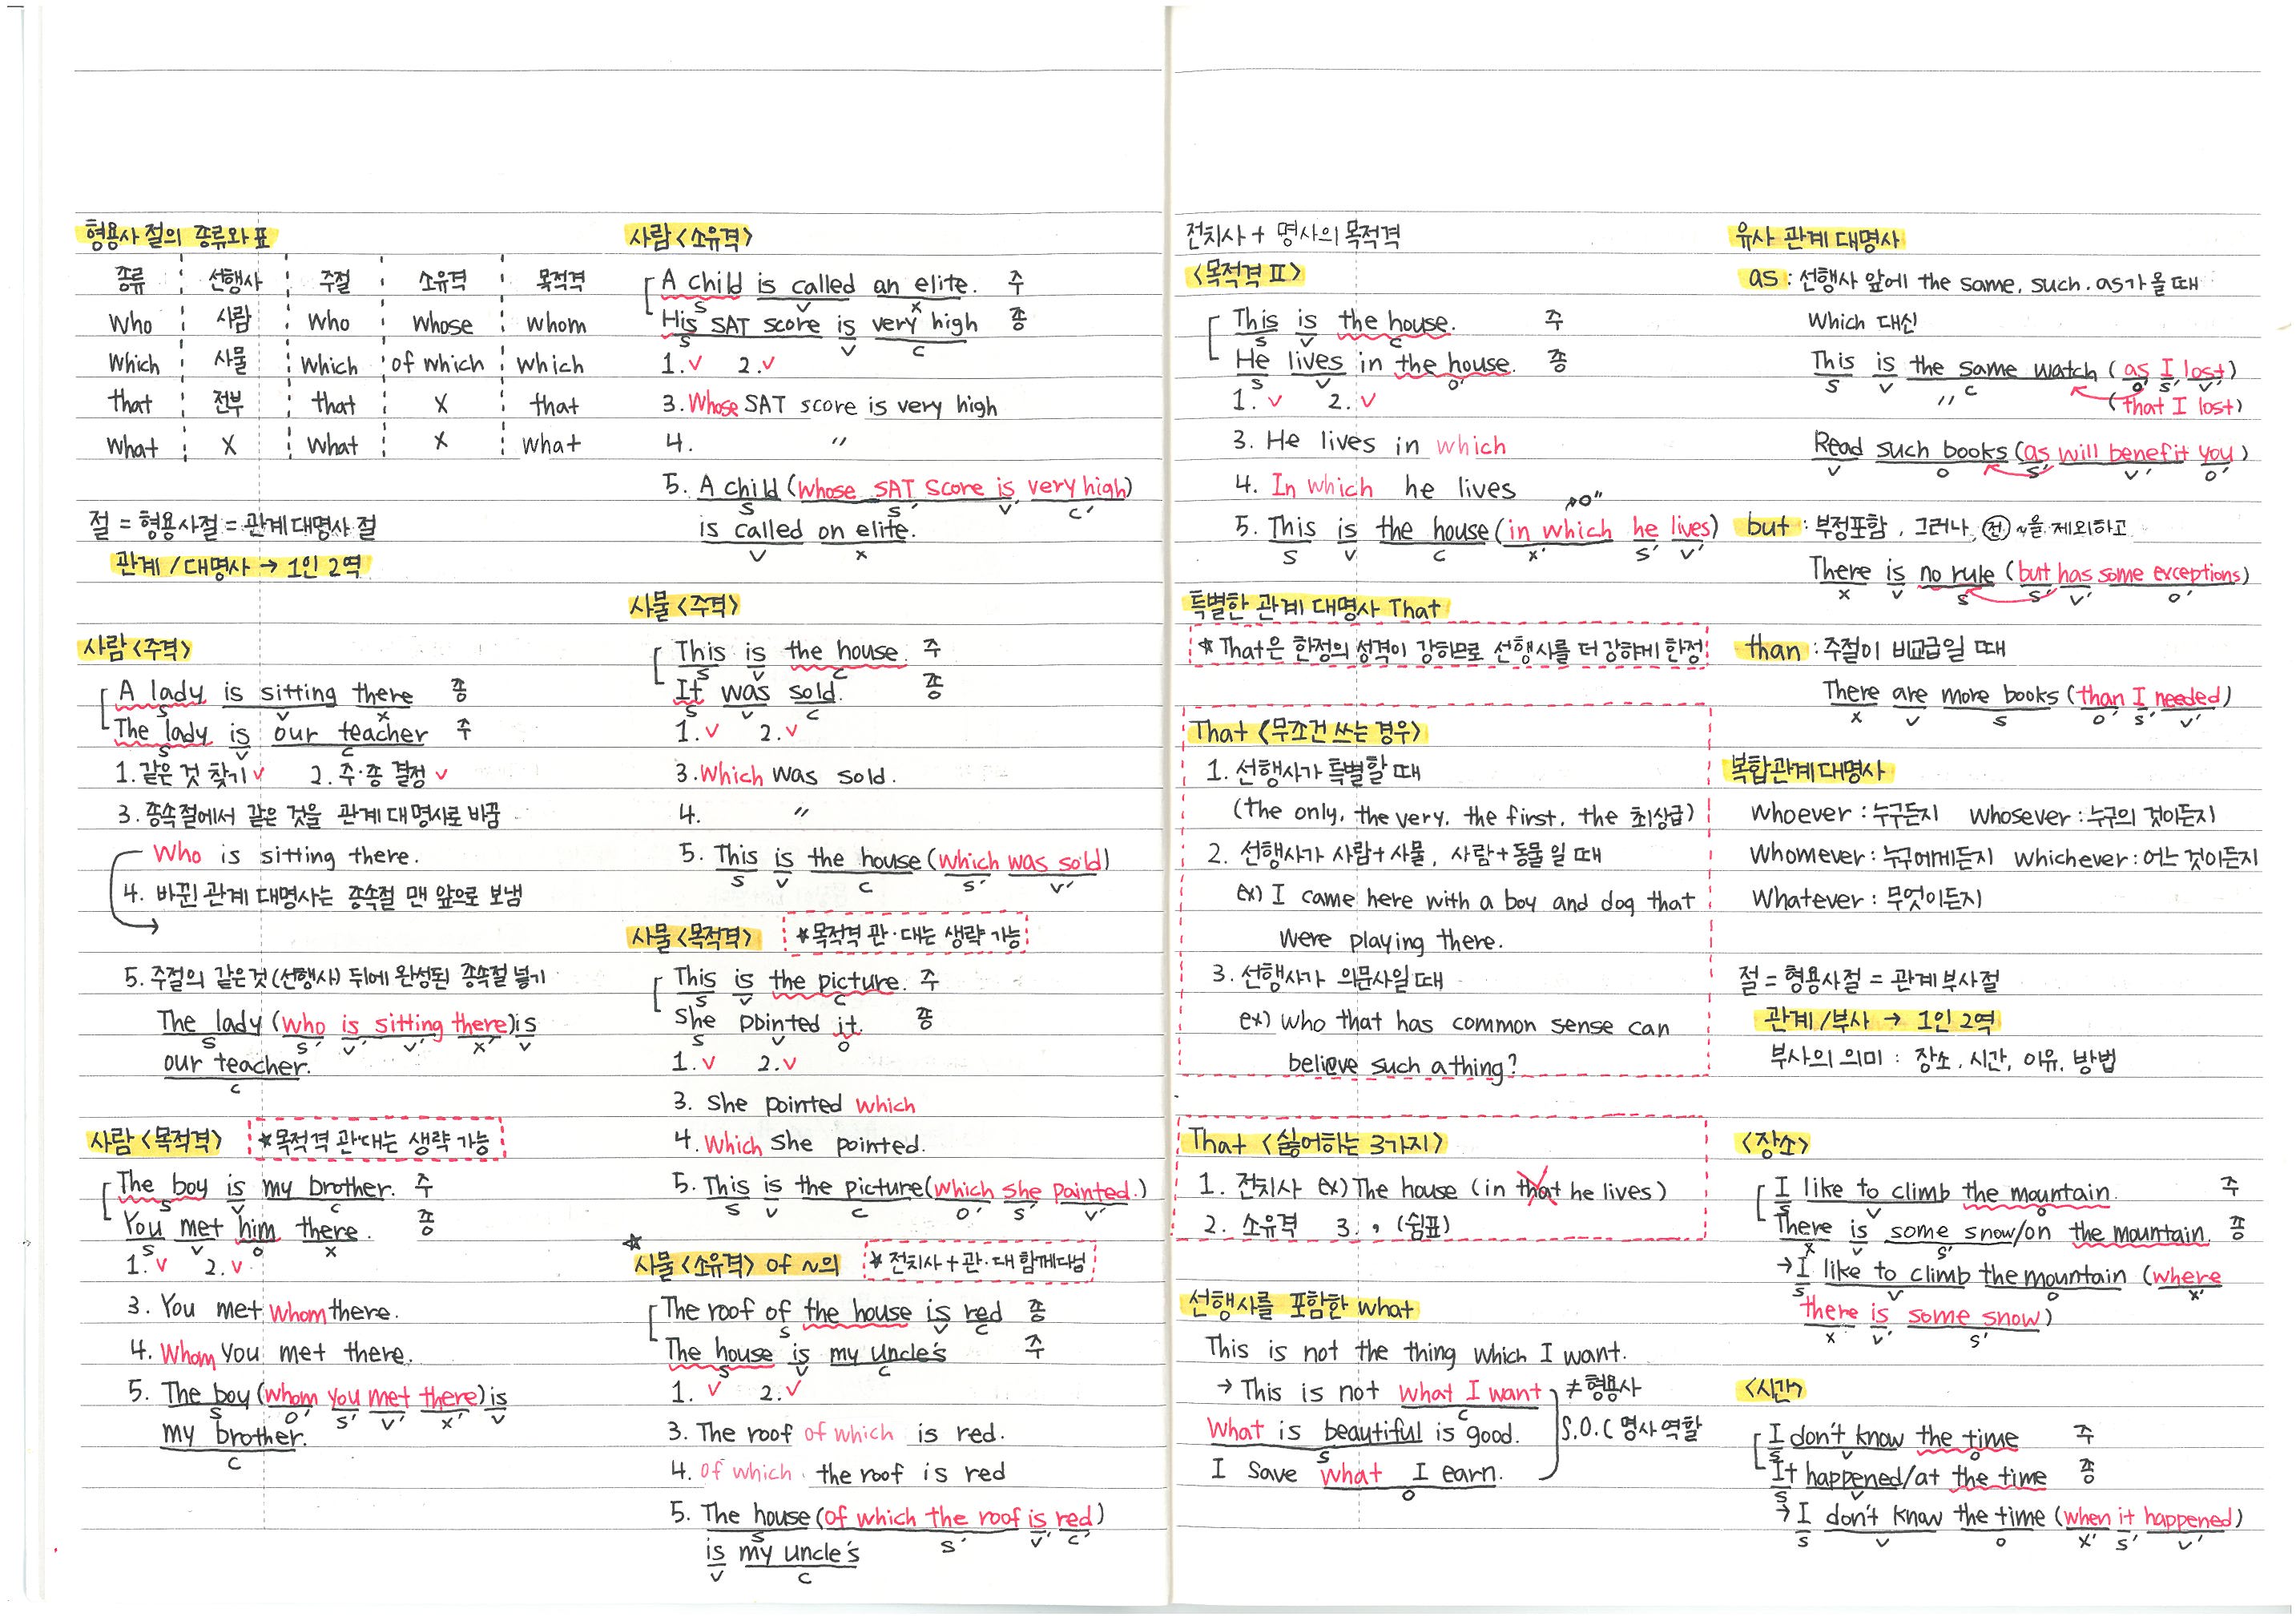 형용사 절의 종류와 표
종류 선행사 주절 소유격 목적격
who 사람 who whose whom
which 사물 which of which which
that 전부 that X that
what X what X what
절 = 형용사절 = 관계대명사 절
관계 / 대명사 → 1인 2역
사람 <주격>
A lady is sitting there 종
S V X
The lady is our teacher 주
S V C
1. 같은 것 찾기 v 2. 주·종 결정 v
3. 종속절에서 같은 것을 관계 대명사로 바꿈
Who is sitting there.
4. 바뀐 관계 대명사는 종속절 맨 앞으로 보냄
5. 주절의 같은것(선행사) 뒤에 완성된 종속절 넣기
The lady (who is sitting there) is
S S' V' V' X' V
our teacher.
C
사람 <목적격> *목적격 관·대는 생략 가능
The boy is my brother. 주
S V C
You met him there. 종
S V O X
1. v 2. v
3. You met whom there.
4. Whom you met there.
5. The boy (whom you met there) is
S O' S' V' X' V
my brother.
C
사람 <소유격>
A child is called an elite. 주
S V X
His SAT score is very high 종
S V C
1. v 2. v
3. Whose SAT score is very high
4. "
5. A child (whose SAT score is very high)
S S' V' C'
is called on elite.
V X
사물 <주격>
This is the house. 주
S V C
It was sold. 종
S V C
1. v 2. v
3. Which was sold.
4. "
5. This is the house (which was sold)
S V C S' V'
사물 <목적격> *목적격 관·대는 생략 가능
This is the picture. 주
S V C
She pointed it. 종
S V O
1. v 2. v
3. She pointed which
4. Which she pointed.
5. This is the picture (which she pointed.)
S V C O' S' V'
☆
사물 <소유격> of ~의 * 전치사 + 관·대 함께다님
The roof of the house is red 종
S V C
The house is my uncle's 주
S V C
1. v 2. v
3. The roof of which is red.
4. Of which the roof is red
5. The house (of which the roof is red)
S S' V' C'
is my uncle's
V C
전치사 + 명사의 목적격
<목적격 II>
This is the house. 주
S V C
He lives in the house. 종
S V O'
1. v 2. v
3. He lives in which
4. In which he lives
O"
5. This is the house (in which he lives)
S V C X' S' V'
특별한 관계 대명사 That
* That은 한정의 성격이 강하므로 선행사를 더 강하게 한정
That <무조건 쓰는 경우>
1. 선행사가 특별할 때
(the only, the very, the first, the 최상급)
2. 선행사가 사람+사물, 사람+동물 일 때
ex) I came here with a boy and dog that
were playing there.
3. 선행사가 의문사일 때
ex) who that has common sense can
believe such a thing?
That <싫어하는 3가지>
1. 전치사 ex) The house (in that he lives)
2. 소유격 3. , (쉼표)
선행사를 포함한 what
This is not the thing which I want.
→ This is not what I want ≠ 형용사
C
What is beautiful is good. S.O.C 명사 역할
S
I save what I earn.
O
유사 관계 대명사
as : 선행사 앞에 the same, such, as가 올 때
which 대신
This is the same watch (as I lost)
S V " C O' S' V'
(that I lost)
Read such books (as will benefit you)
V O S' V' O'
but : 부정포함, 그러나, 전 ~을 제외하고
There is no rule (but has some exceptions)
X V S S' V' O'
than : 주절이 비교급일 때
There are more books (than I needed)
X V S O' S' V'
복합관계대명사
whoever : 누구든지 whosever : 누구의 것이든지
whomever : 누구에게든지 whichever : 어느 것이든지
whatever : 무엇이든지
절 = 형용사절 = 관계 부사절
관계 / 부사 → 1인 2역
부사의 의미 : 장소, 시간, 이유, 방법
<장소>
I like to climb the mountain. 주
S V O
There is some snow/on the mountain. 종
X V S'
→ I like to climb the mountain (where
S V O X'
there is some snow)
X V' S'
<시간>
I don't know the time 주
S V O
It happened/at the time 종
S V
→ I don't know the time (when it happened)
S V O X' S' V'